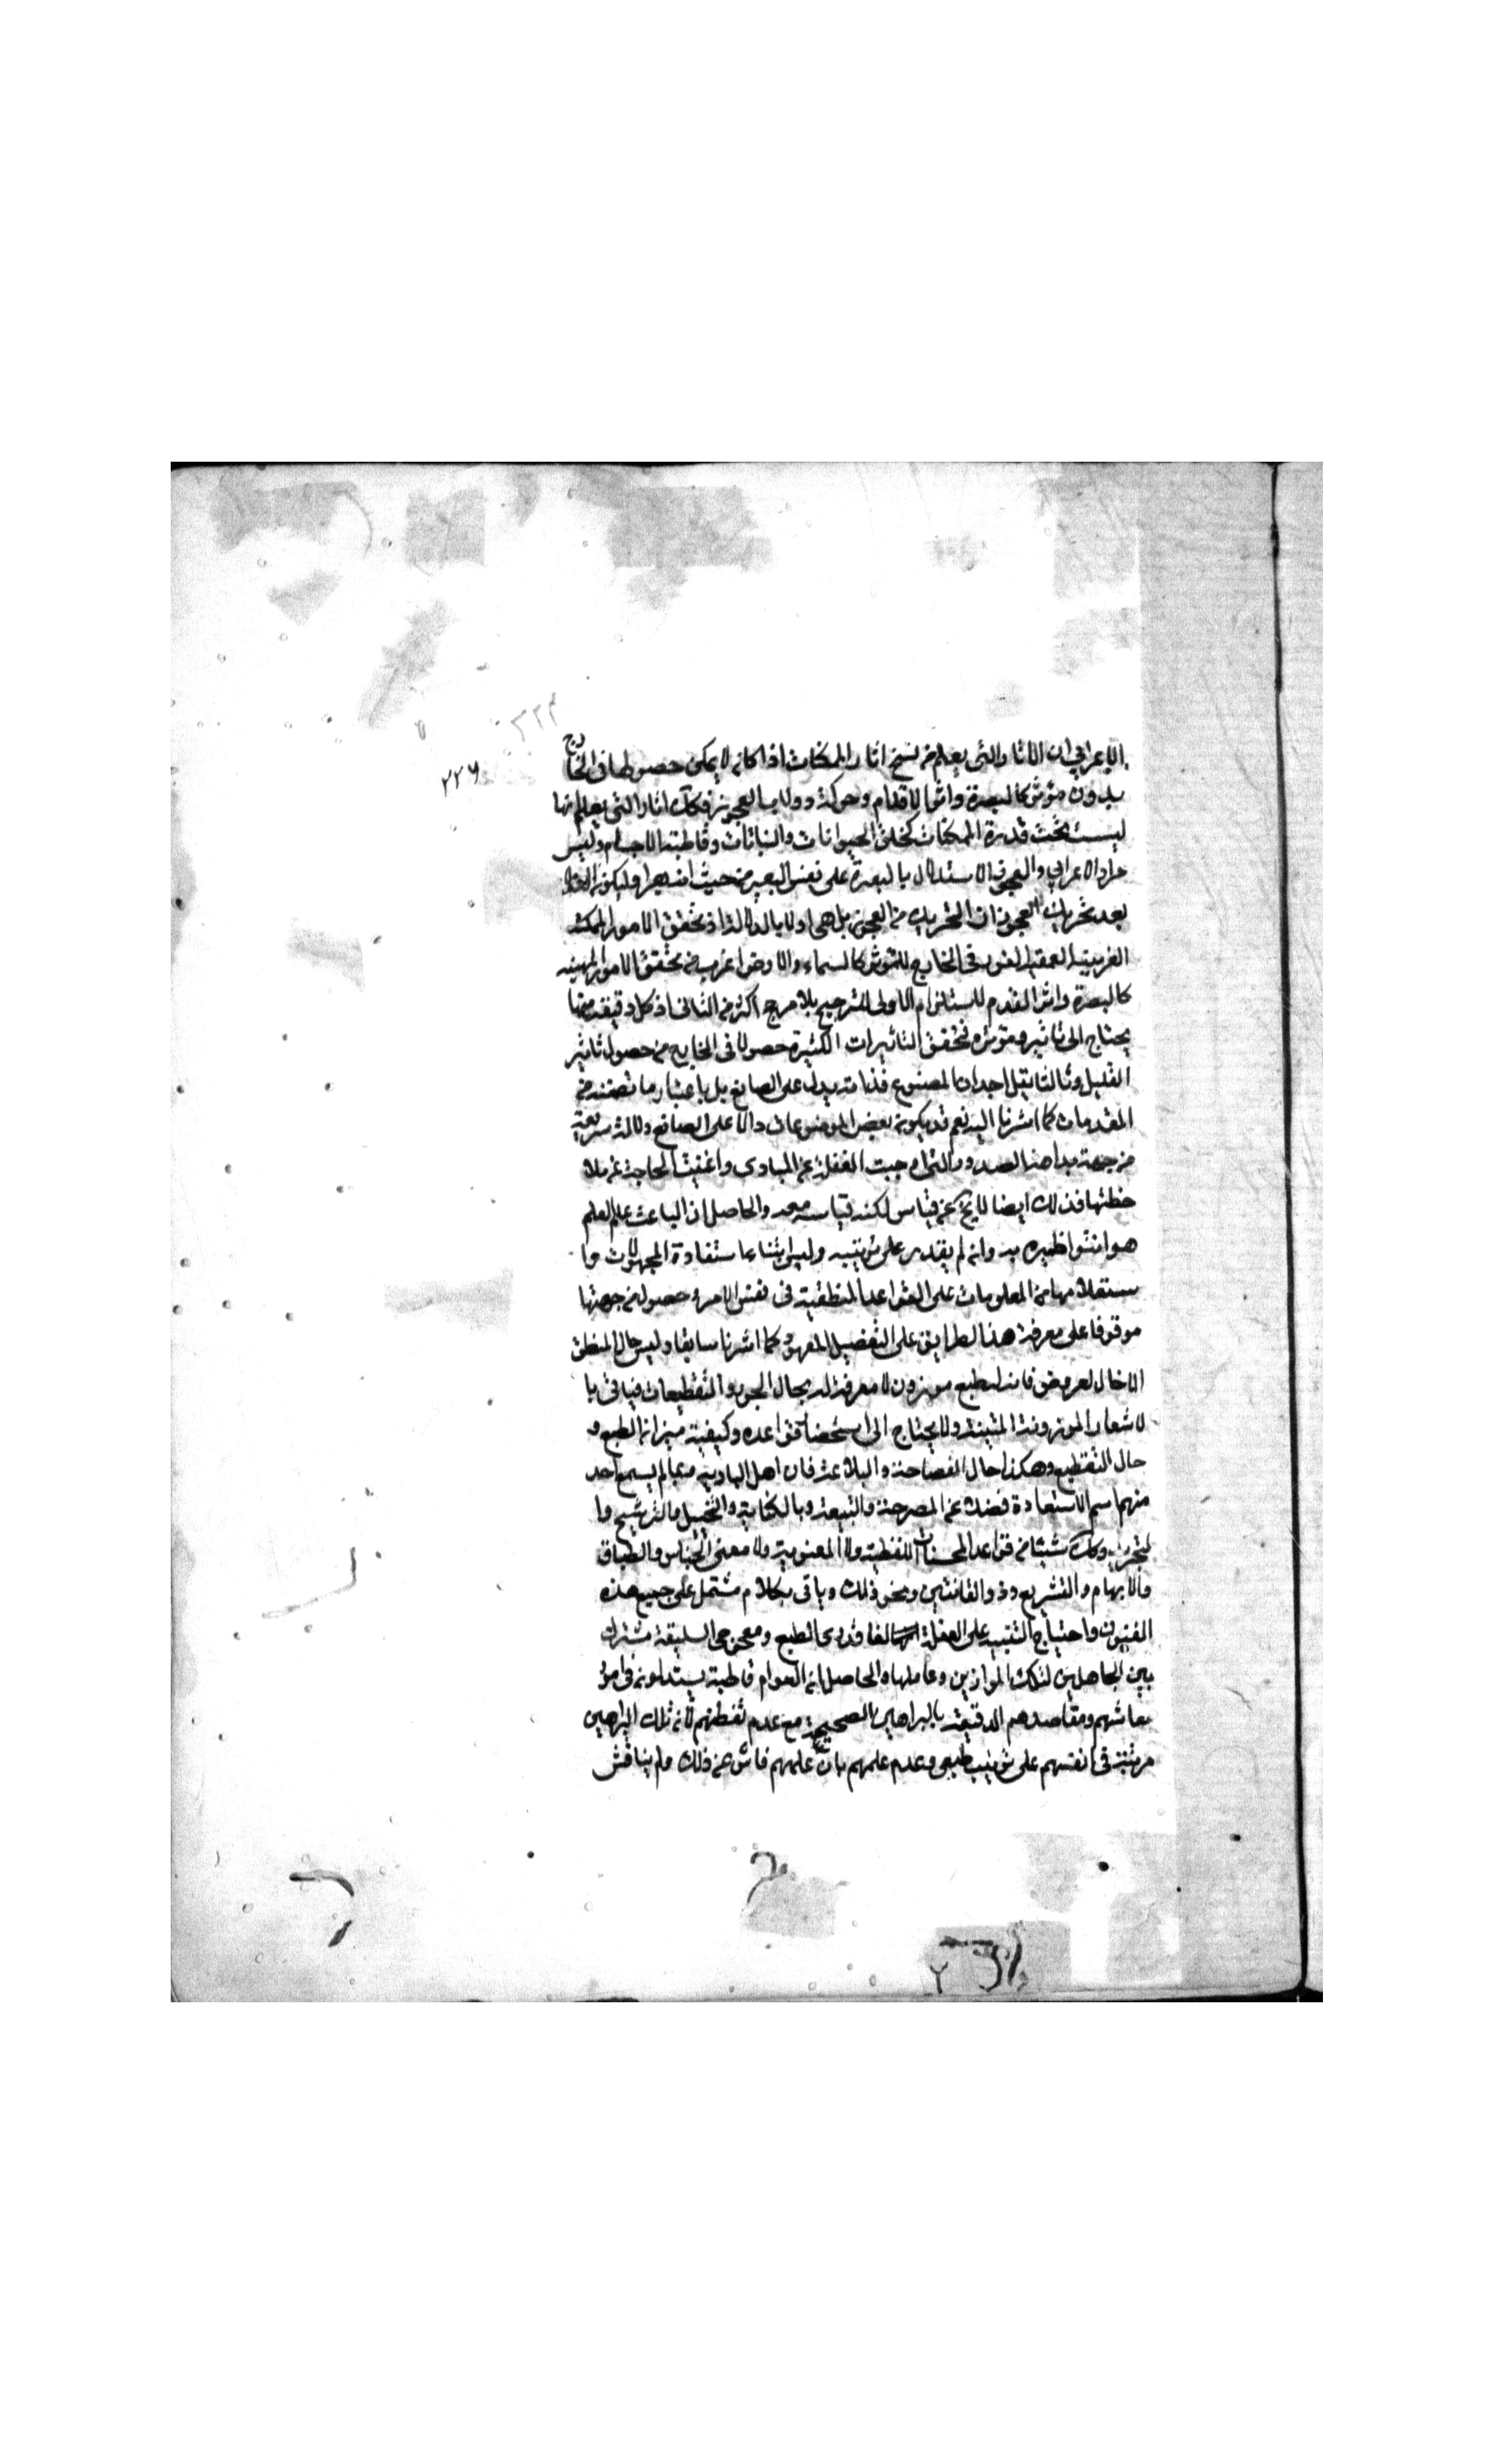 الاعرابي ان الاثار التي يعلم من نسخ اثار الممكنات اذا كانه لا يمكن حصولها في الخارج
بدون مؤثر كالبعرة واثر الاقدام وحركة دولاب العجوز فكك اثار التي يعلم انها
ليست تحت قدرة الممكنات كخلق الحيوانات والنباتات وقاطبة الاجسام وليس
مراد الاعرابي والعجوز الاستدلال بالبعرة على نفس البعير من حيث انه بعير وليكون
بعد تحريك العجوز ان التحريك من العجوز بل هي اولا بالدلالة اذ تحقق الامور الممكنة
الغريبة في الخارج للتوثر كالسماء والارض اغرب من تحقق الامور المهينه
كالبعرة واثر القدم لاستلزام الاولى الترجيح بلا مرجح اكثر من الثاني اذ كل دقيقة منها
يحتاج الى تاثير ومؤثره فتحقق التاثيرات الكثيرة حصولا في الخارج من حصول تاثير
القليل وثالثا يقل احد ان المصنوع فذاته يدل على الصانع بل باعتبار ما تضمنه من
المقدمات كما اشرنا اليه نعم قد يكونه بعض الموضوعات دالا على الصانع دلالة سريعة
من جهة بداهة الصدور والتي اوجبت الغفلة عن المبادى واغنيت الحاجة عن ملا
حظتها فذلك ايضا لا يخ عن قياس لكنه قياسه معه والحاصل ان الباعث علم العلم
هو امتثوا ظهيره به وانه لم يقدر على ترتيبه وليس ابتناء استفادة المجهولات وا
ستعلامها من المعلومات على القواعد المنطقية في نفس الامر وحصوله من جهتها
موقوفا على معرفة هذا الطرايق على التفضيل المعهود كما اشرنا سابقا وليس حال المنطق
الا حال العروض فانه لطبع موزون لا معرفة له بحال البحور والتقطيعات فياتى با
لاشعار الموزونة المتينة ولا يحتاج الى استحضار قواعده وكيفية ميزانه الطبع و
حال التقطيع وهكذا حال الفصاحة والبلاغة فان اهل البادية ربما لم يسمع احد
منهم اسم الاستعارة فضلا عن المصرحة والتبعة وبالكناية والتخييل والترشيح وا
لتجريد وكك شيئا من قواعد المحسنات اللفظية ولا المعنوية ولا معنى الجناس والطباق
والابهام والتشريع وذو القافيتين ونحو ذلك وياتى بكلام مشتمل على جميع هذه
الفنون واحتياج التنبيه على الغفلة لفاقدى الطبع ومعوجى السليقة مشترك
بين الجاهلين لتلك الموازين وعاملها والحاصل انه العوام قاطبة يستدلونه في امور
معاشهم ومقاصدهم الدقيقة بالبراهين الصحيحة مع عدم تفطنهم لانه تلك البراهين
مرتبة في انفسهم على ترتيب طبيعي وعدم علمهم بان علمهم ناش عن ذلك ولم يناقش
٢٢٦